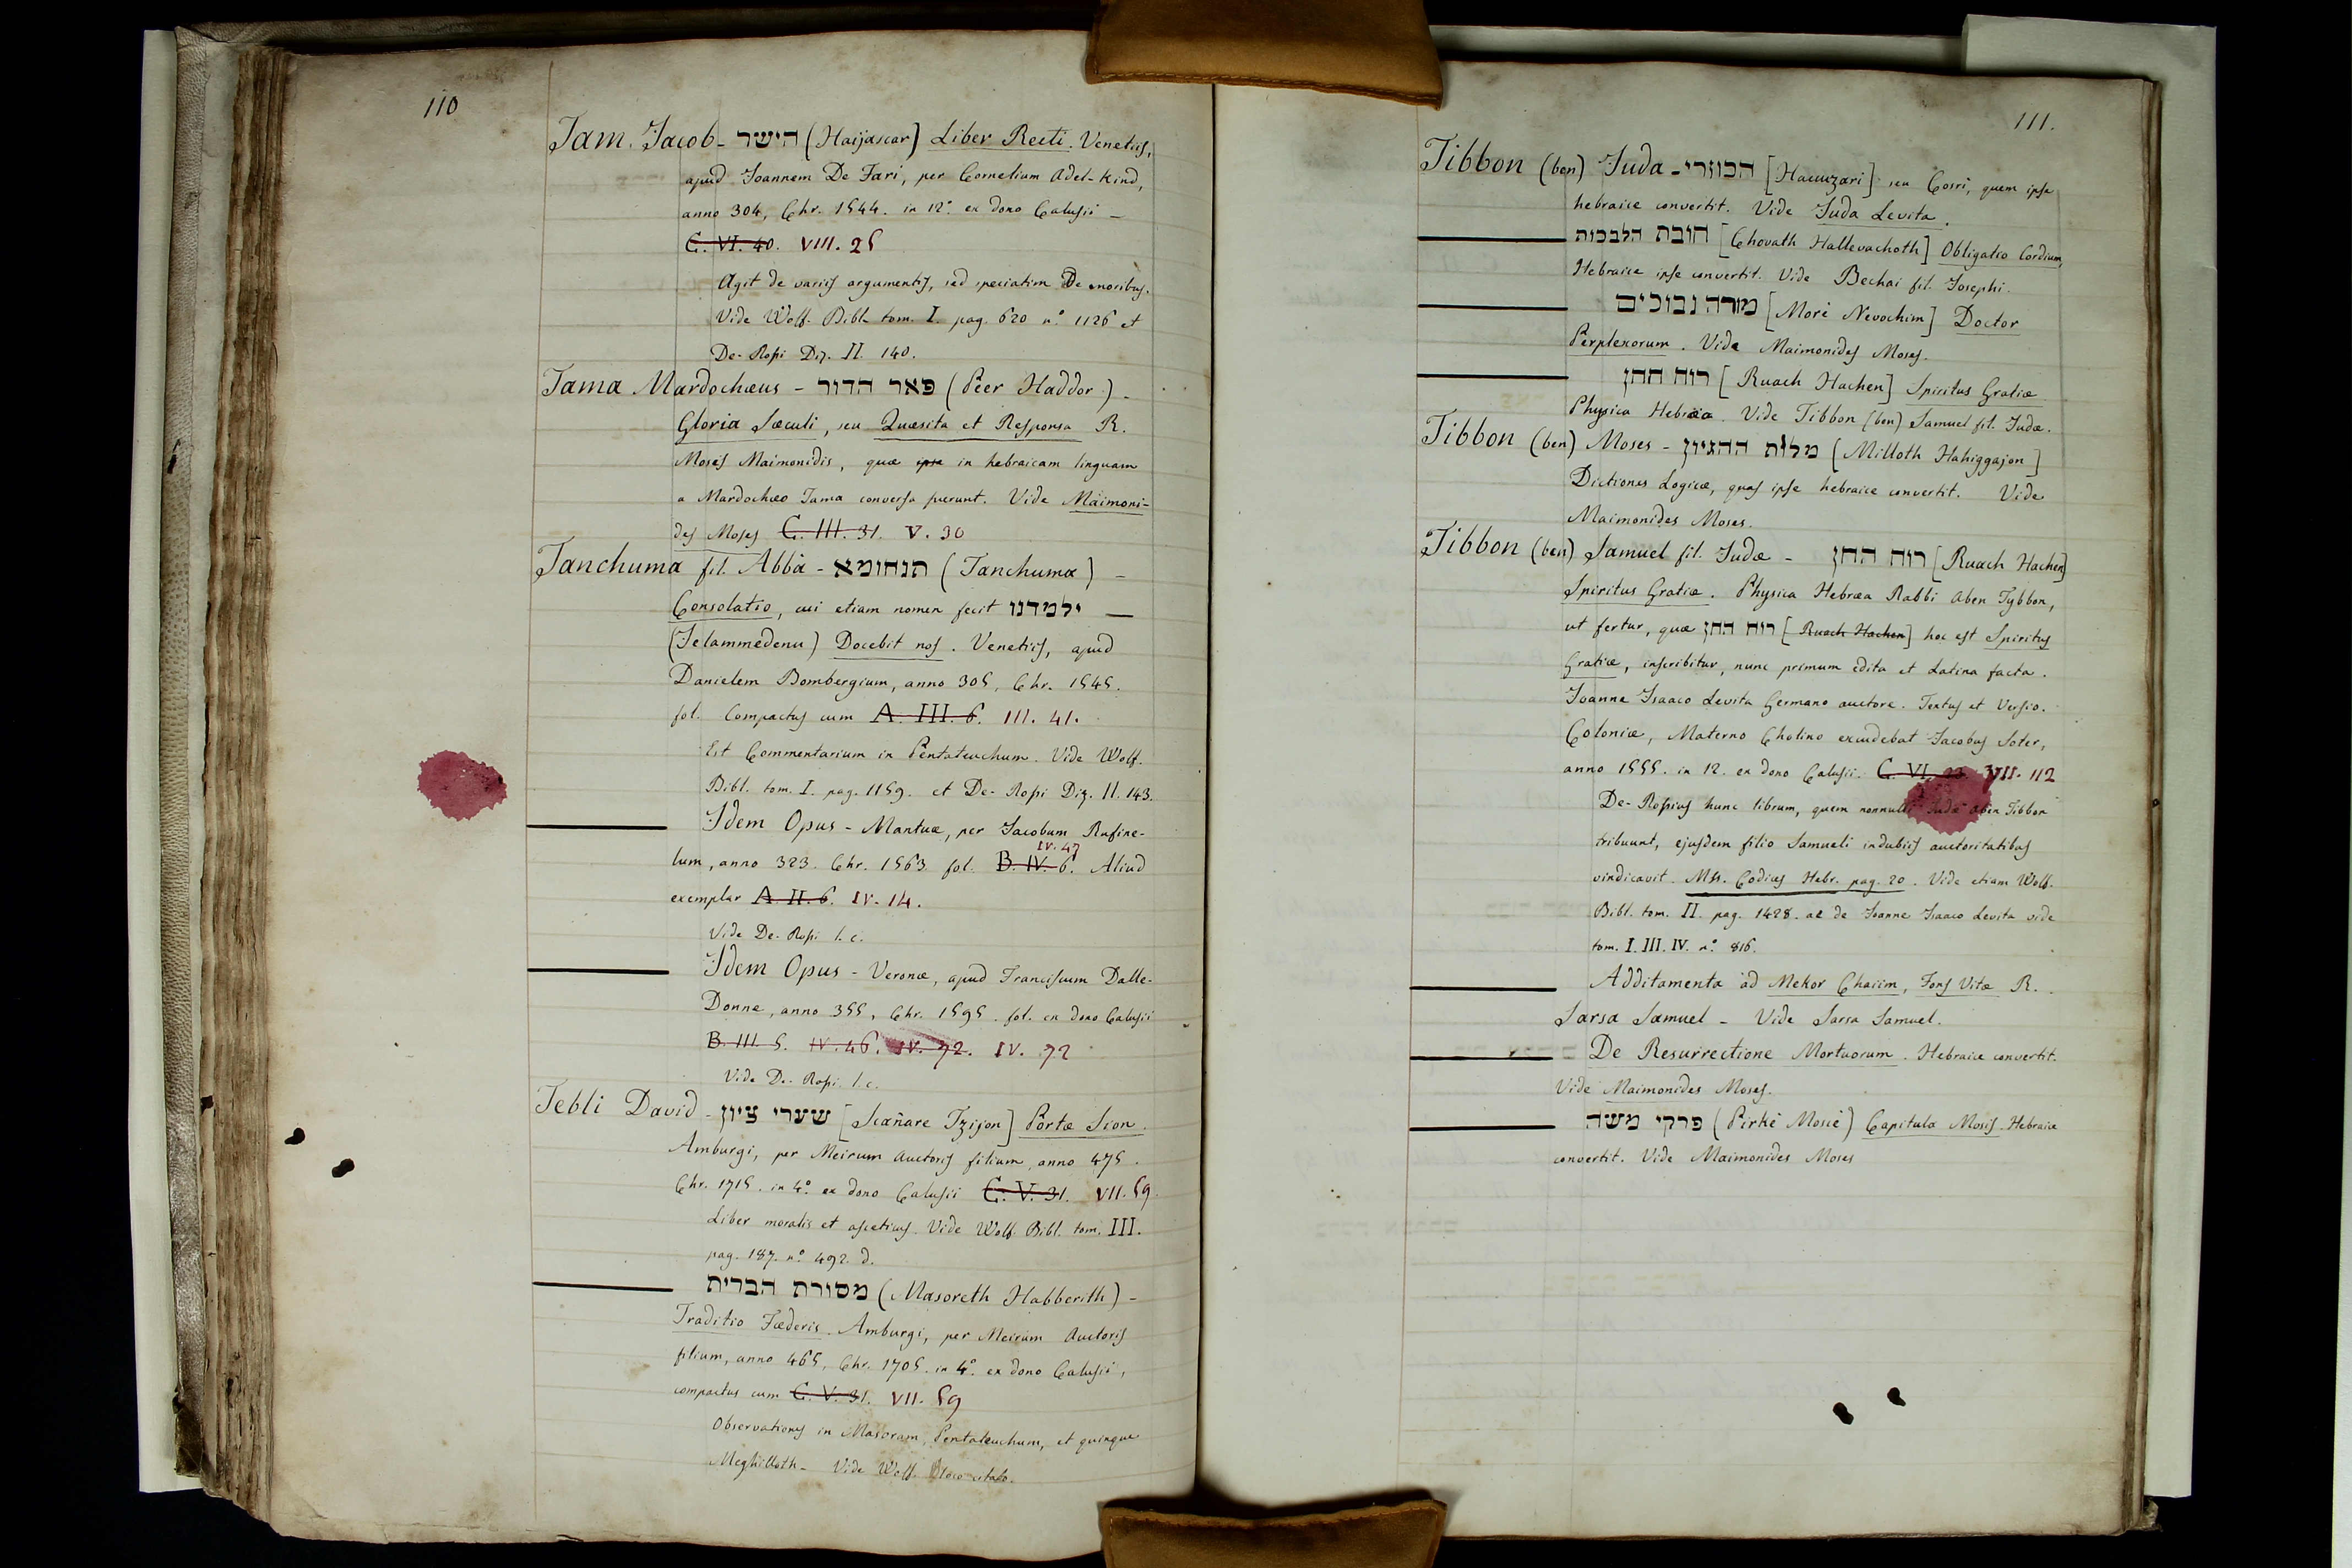 110
Tam. Jacob - הישר (Haijascar) Liber Recti. Venetiis,
apud Joannem De Fari, per Cornelium Adel-Kind,
anno 304, Chr. 1544. in 12.° ex dono Calusii -
C. VI. 40. VIII. 25
Agit de variis argumentis, sed speciatim De moribus.
Vide Wolf. Bibl. tom. I. pag. 620 n.° 1126 et
De-Rossi Diz. II. 140.
Tama Mardochæus - פאר הדור (Pèer Haddor) -
Gloria Sæculi, seu Quæsita et Responsa R.
Mosis Maimonidis, quæ ipse in hebraicam linguam
a Mardochæo Tama conversa fuerunt. Vide Maimoni-
des Moses C. III. 31. V. 30
Tanchuma fil. Abbà - תנחומא (Tanchuma) -
Consolatio, cui etiam nomen fecit ילמדנו —
(Jelammedenu) Docebit nos. Venetiis, apud
Danielem Bombergium, anno 305, Chr. 1545.
fol. Compactus cum A. III. 6. III. 41.
Est Commentarium in Pentateuchum. Vide Wolf.
Bibl. tom. I. pag. 1159. et De-Rossi Diz. II. 143.
Idem Opus - Mantuæ, per Jacobum Rufine-
IV. 47
lum, anno 323. Chr. 1563. fol. B. IV. 6. Aliud
exemplar A. II. 6. IV. 14.
Vide De-Rossi l. c.
Idem Opus - Veronæ, apud Franciscum Dalle-
Donne, anno 355, Chr. 1595. fol. ex dono Calusii
B. III. 5. IV. 46. IV. 72. IV. 72
Vide De-Rossi l. c.
Tebli David - שערי ציון [Scañare Tzijon] Portæ Sion.
Amburgi, per Meirum Auctoris filium, anno 475.
Chr. 1715. in 4.° ex dono Calusii C. V. 31. VII. 59.
Liber moralis et asceticus. Vide Wolf. Bibl. tom. III.
pag. 187. n.° 492. d.
מסורת הברית (Masoreth Habberith) -
Traditio Fæderis. Amburgi, per Meirum Auctoris
filium, anno 465, Chr. 1705. in 4.° ex dono Calusii,
compactus cum C. V. 31. VII. 59
Observationes in Masoram, Pentateuchum, et quinque
Meghilloth - Vide Wolf. loco citato.
111.
Tibbon (ben) Juda - הכוזרי [Hacuzari] seu Cosri, quem ipse
hebraice convertit. Vide Juda Levita.
חובת הלבבות [Chovath Hallevachoth] Obligatio Cordium,
Hebraice ipse convertit. Vide Bechai fil. Josephi.
מורה נבוכים [Morè Nevochim] Doctor
Perplexorum. Vide Maimonides Moses.
רוח החן [Ruach Hachen] Spiritus Gratiæ
Physica Hebræa. Vide Tibbon (ben) Samuel fil. Judæ.
Tibbon (ben) Moses - מלות ההגיון [Milloth Hahiggajon]
Dictiones Logicæ, quas ipse hebraice convertit. Vide
Maimonides Moses.
Tibbon (ben) Samuel fil. Judæ - רוח החן [Ruach Hachen]
Spiritus Gratiæ. Physica Hebræa Rabbi Aben Tybbon,
ut fertur, quæ רוח החן [Ruach Hachen] hoc est Spiritus
Gratiæ, inscribitur, nunc primum edita et Latina facta.
Joanne Isaaco Levita Germano auctore. Textus et Versio.
Coloniæ, Materno Cholino excudebat Jacobus Soter,
anno 1555. in 12. ex dono Calusii. C. VI. 23. VIII. 112
De-Rossius hunc librum, quem nonnulli Judæ Aben Tibbon
tribuunt, ejusdem filio Samueli indubiis auctoritatibus
vindicavit. Mss. Codices Hebr. pag. 20. Vide etiam Wolf.
Bibl. tom. II. pag. 1428. ac de Joanne Isaaco Levita vide
tom. I. III. IV. n.° 816.
Additamenta ad Mekor Chaiim, Fons Vitæ R.
Sarsa Samuel - Vide Sarsa Samuel.
De Resurrectione Mortuorum. Hebraice convertit.
Vide Maimonides Moses.
פרקי משה (Pirkè Moscè) Capitula Mosis. Hebraice
convertit. Vide Maimonides Moses